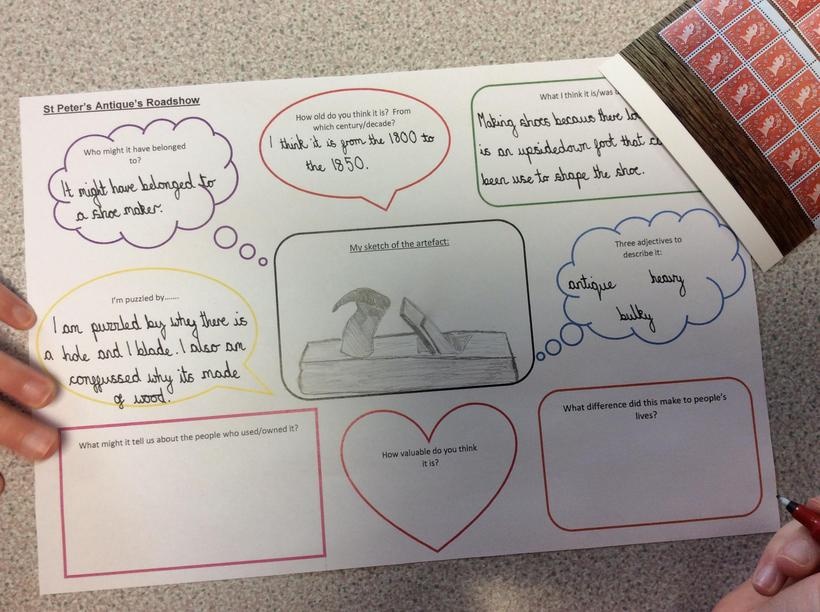 St Peter's Antique's Roadshow
Who might it have belonged
to?
It might have belonged to
a shoe maker.
How old do you think it is? From
which century/decade?
I think it is from the 1800 to
the 1850.
What I think it is/was
Making shoes becaus there
is an upsidedown foot that
been use to shape the shoe.
I'm puzzled by.......
I am puzzled by whey there is
a hole and 1 blade. I also am
conffussed why its made
of wood.
My sketch of the artefact:
Three adjectives to
describe it:
antique heavy
bulky
What might it tell us about the people who used/owned it?
How valuable do you think
it is?
What difference did this make to people's
lives?